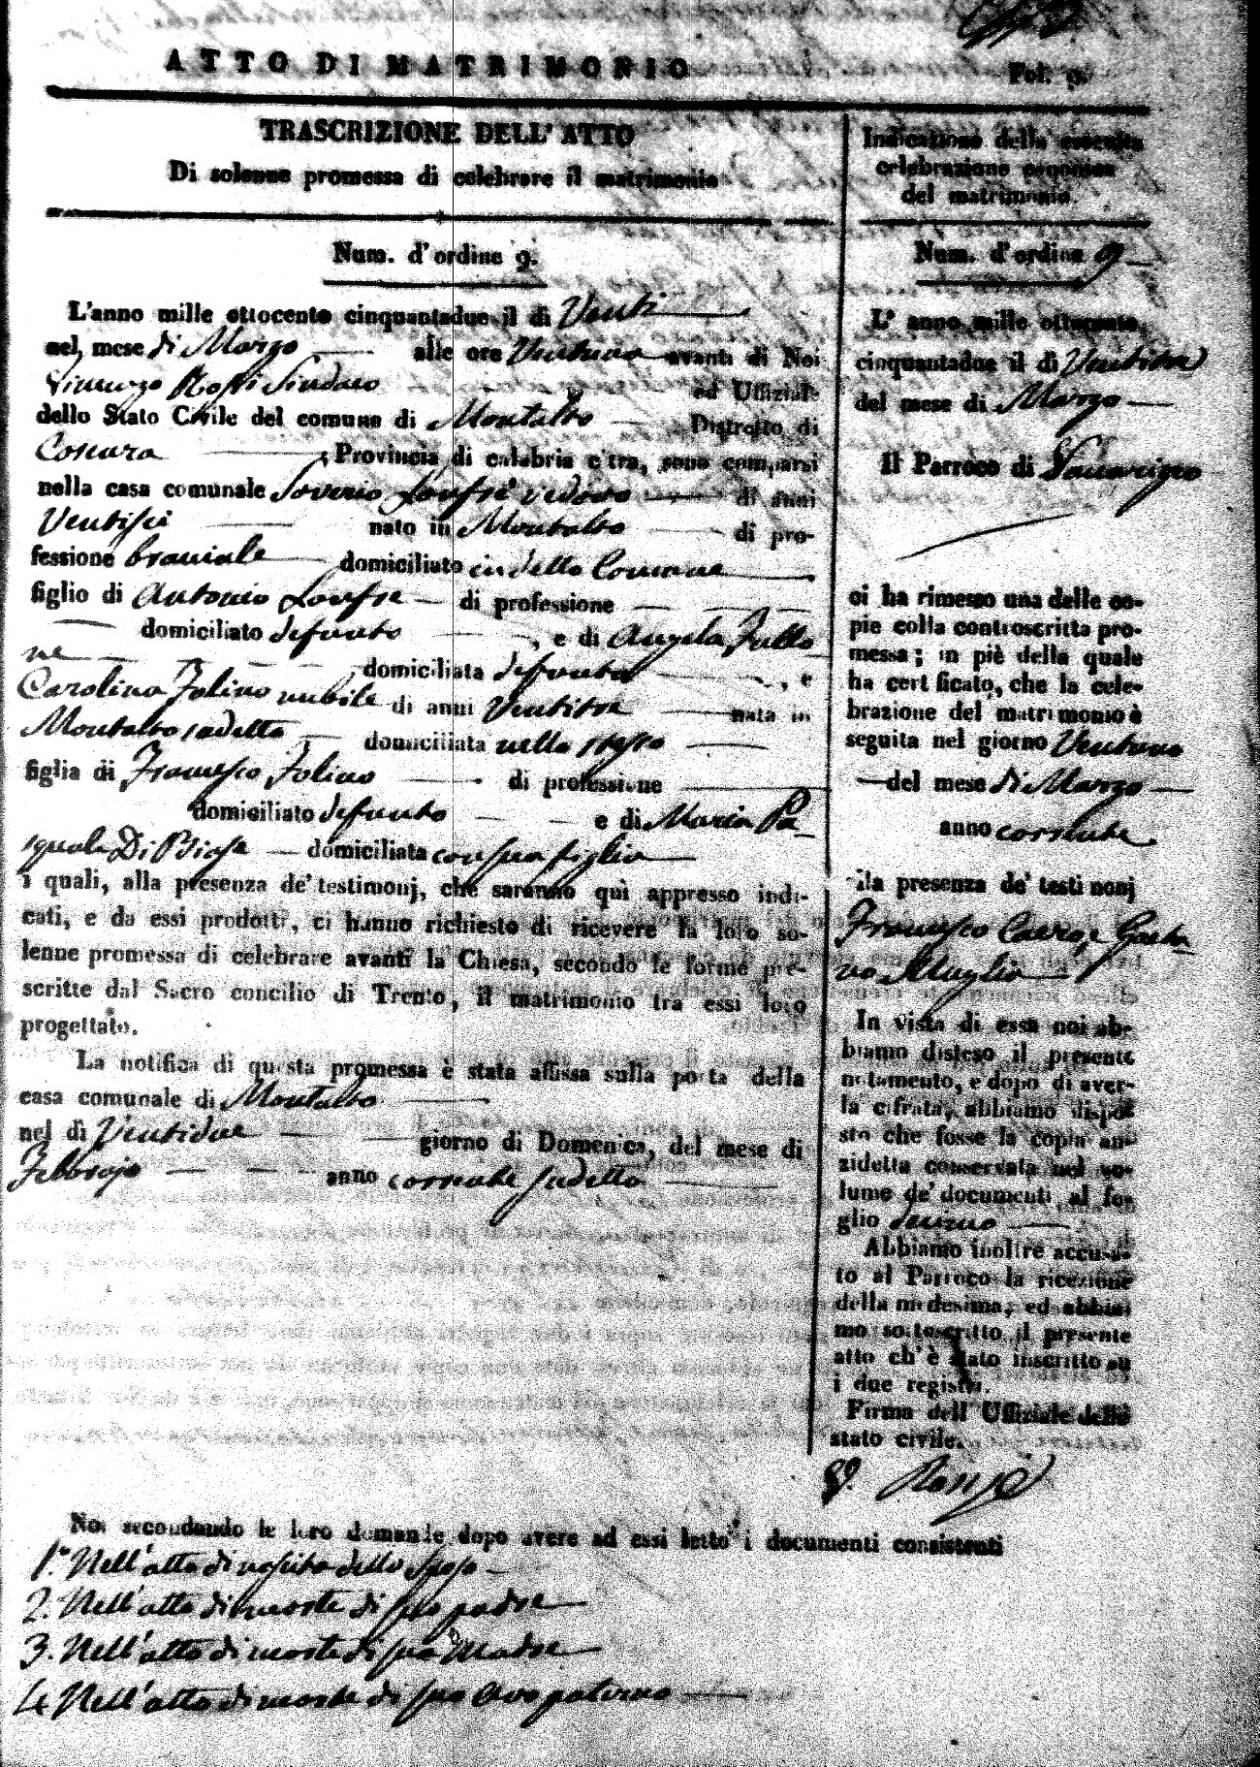 ATTO DI MATRIMONIO
Fol. 9.
TRASCRIZIONE DELL' ATTO
Di solenne promessa di celebrare il matrimonio
Num. d'ordine 9.
L'anno mille ottocento cinquantadue il di Venti
nel mese di Marzo alle ore Ventuno avanti di Noi
Vincenzo Rossi Sindaco ed Uffiziale
dello Stato Civile del comune di Montalto Distretto di
Cosenza, Provincia di calabria citra, sono comparsi
nella casa comunale Saverio vedovo di anni
Ventisei nato in Montalto di pro-
fessione braciale domiciliato in detto Comune
figlio di Antonio di professione
domiciliato defunto, e di Angela Fullo
ne domiciliata defunta, e
Carolina Folino nubile di anni Ventitre nata in
Montalto sudetto domiciliata nello stesso
figlia di Francesco Folino di professione
domiciliato defunto e di Maria Pa-
squale Di Biase domiciliata con sua figlia
i quali, alla presenza de' testimonj, che saranno quì appresso indi-
cati, e da essi prodotti, ci hanno richiesto di ricevere la loro so-
lenne promessa di celebrare avanti la Chiesa, secondo le forme pre-
scritte dal Sacro concilio di Trento, il matrimonio tra essi loro
progettato.
La notifica di questa promessa è stata affissa sulla porta della
casa comunale di Montalto
nel dì Ventidue giorno di Domenica, del mese di
Febbrajo anno corrente sudetto
Indicazione della seguita
celebrazione canonica
del matrimonio.
Num. d'ordine 9
L' anno mille ottocento
cinquantadue il di Ventitre
del mese di Marzo
Il Parroco di
ci ha rimesso una delle co-
pie colla controscritta pro-
messa; in piè della quale
ha certificato, che la cele-
brazione del matrimonio è
seguita nel giorno Ventuno
del mese di Marzo
anno corrente
alla presenza de' testimonj
Francesco e Gaeta
no Muglia
In vista di essa noi ab-
biamo disteso il presente
notamento, e dopo di aver-
la cifrata, abbiamo dispo-
sto che fosse la copia an-
zidetta conservata nel vo-
lume de' documenti al fo-
glio
Abbiamo inoltre accusa-
to al Parroco la ricezione
della medesima, ed abbia-
mo sottoscritto il presente
atto ch'è stato inscritto su
i due registri.
Firma dell' Uffiziale dello
stato civile.
V. Rossi
Noi secondando le loro domande dopo avere ad essi letto i documenti consistenti
1.° Nell'atto di nascita dello Sposo
2. Nell'atto di morte di suo padre
3. Nell'atto di morte di sua Madre
4. Nell'atto di morte di suo Avo paterno